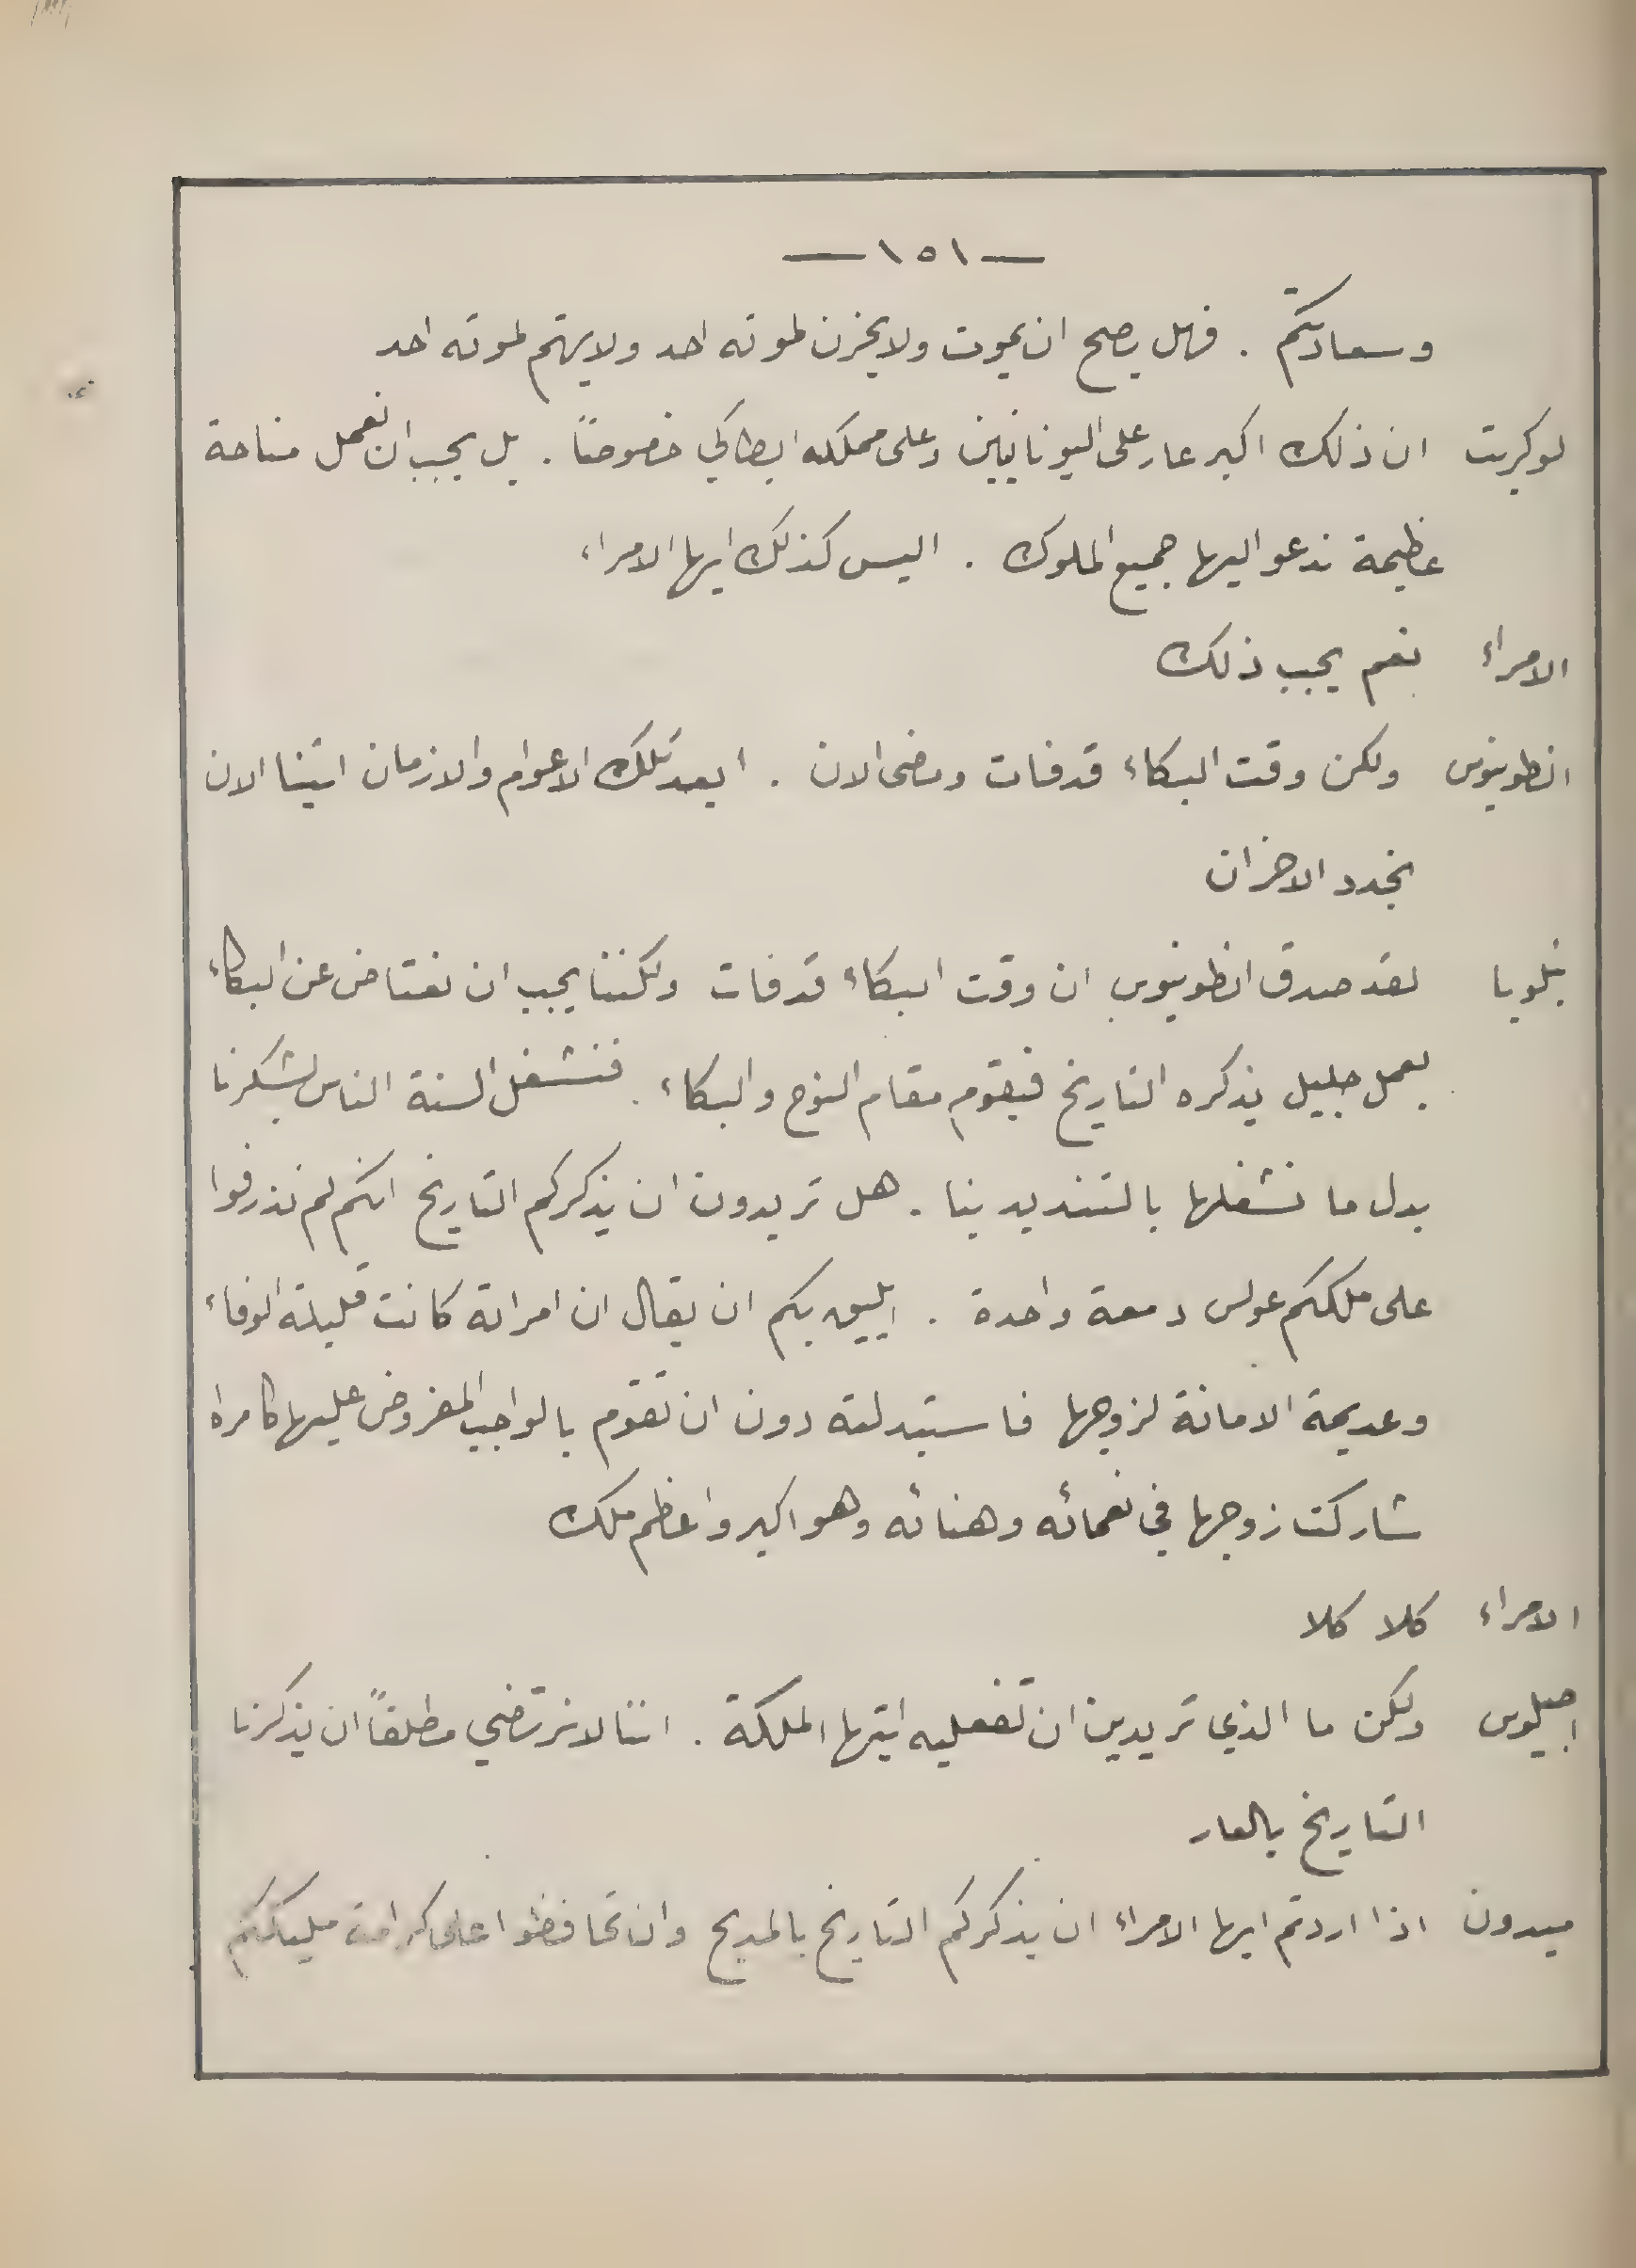 — ١٥١ —
وسعادتكم . فهل يصح ان يموت ولا يحزن لموته احد ولا يهتم لموته احد
لوكريت ان ذلك اكبر عار على اليونانيين وعلى مملكه ايطاكي خصوصاً . بل يجب ان نعمل مناحة
عظيمة ندعو اليها جميع الملوك . اليس كذلك ايها الامراء
الامراء نعم يجب ذلك
انطونيوس ولكن وقت البكاء قد فات ومضى الان . ابعد تلك الاعوام والازمان اتينا الان
نجدد الاحزان
بنلوبا لقد صدق انطونيوس ان وقت البكاء قد فات ولكننا يجب ان نعتاض عن البكاء
بعمل جليل يذكره التاريخ فيقوم مقام النوح والبكاء . فنشغل السنة الناس بشكرنا
بدل ما نشغلها بالتنديد بنا . هل تريدون ان يذكركم التاريخ انكم لم تذرفوا
على ملككم عولس دمعة واحدة . ايليق بكم ان يقال ان امراته كانت قليلة الوفاء
وعديمة الامانة لزوجها فاستبدلته دون ان تقوم بالواجب المفروض عليها كامراه
شاركت زوجها في نعمائه وهنائه وهو اكبر واعظم ملك
الامراء كلا كلا
اجيلوس ولكن ما الذي تريدين ان تفعليه ايتها الملكة . اننا لا نرتضي مطلقاً ان يذكرنا
التاريخ بالعار
ميدون اذا اردتم ايها الامراء ان يذكركم التاريخ بالمديح وان تحافظوا على كرامة مليكتكم